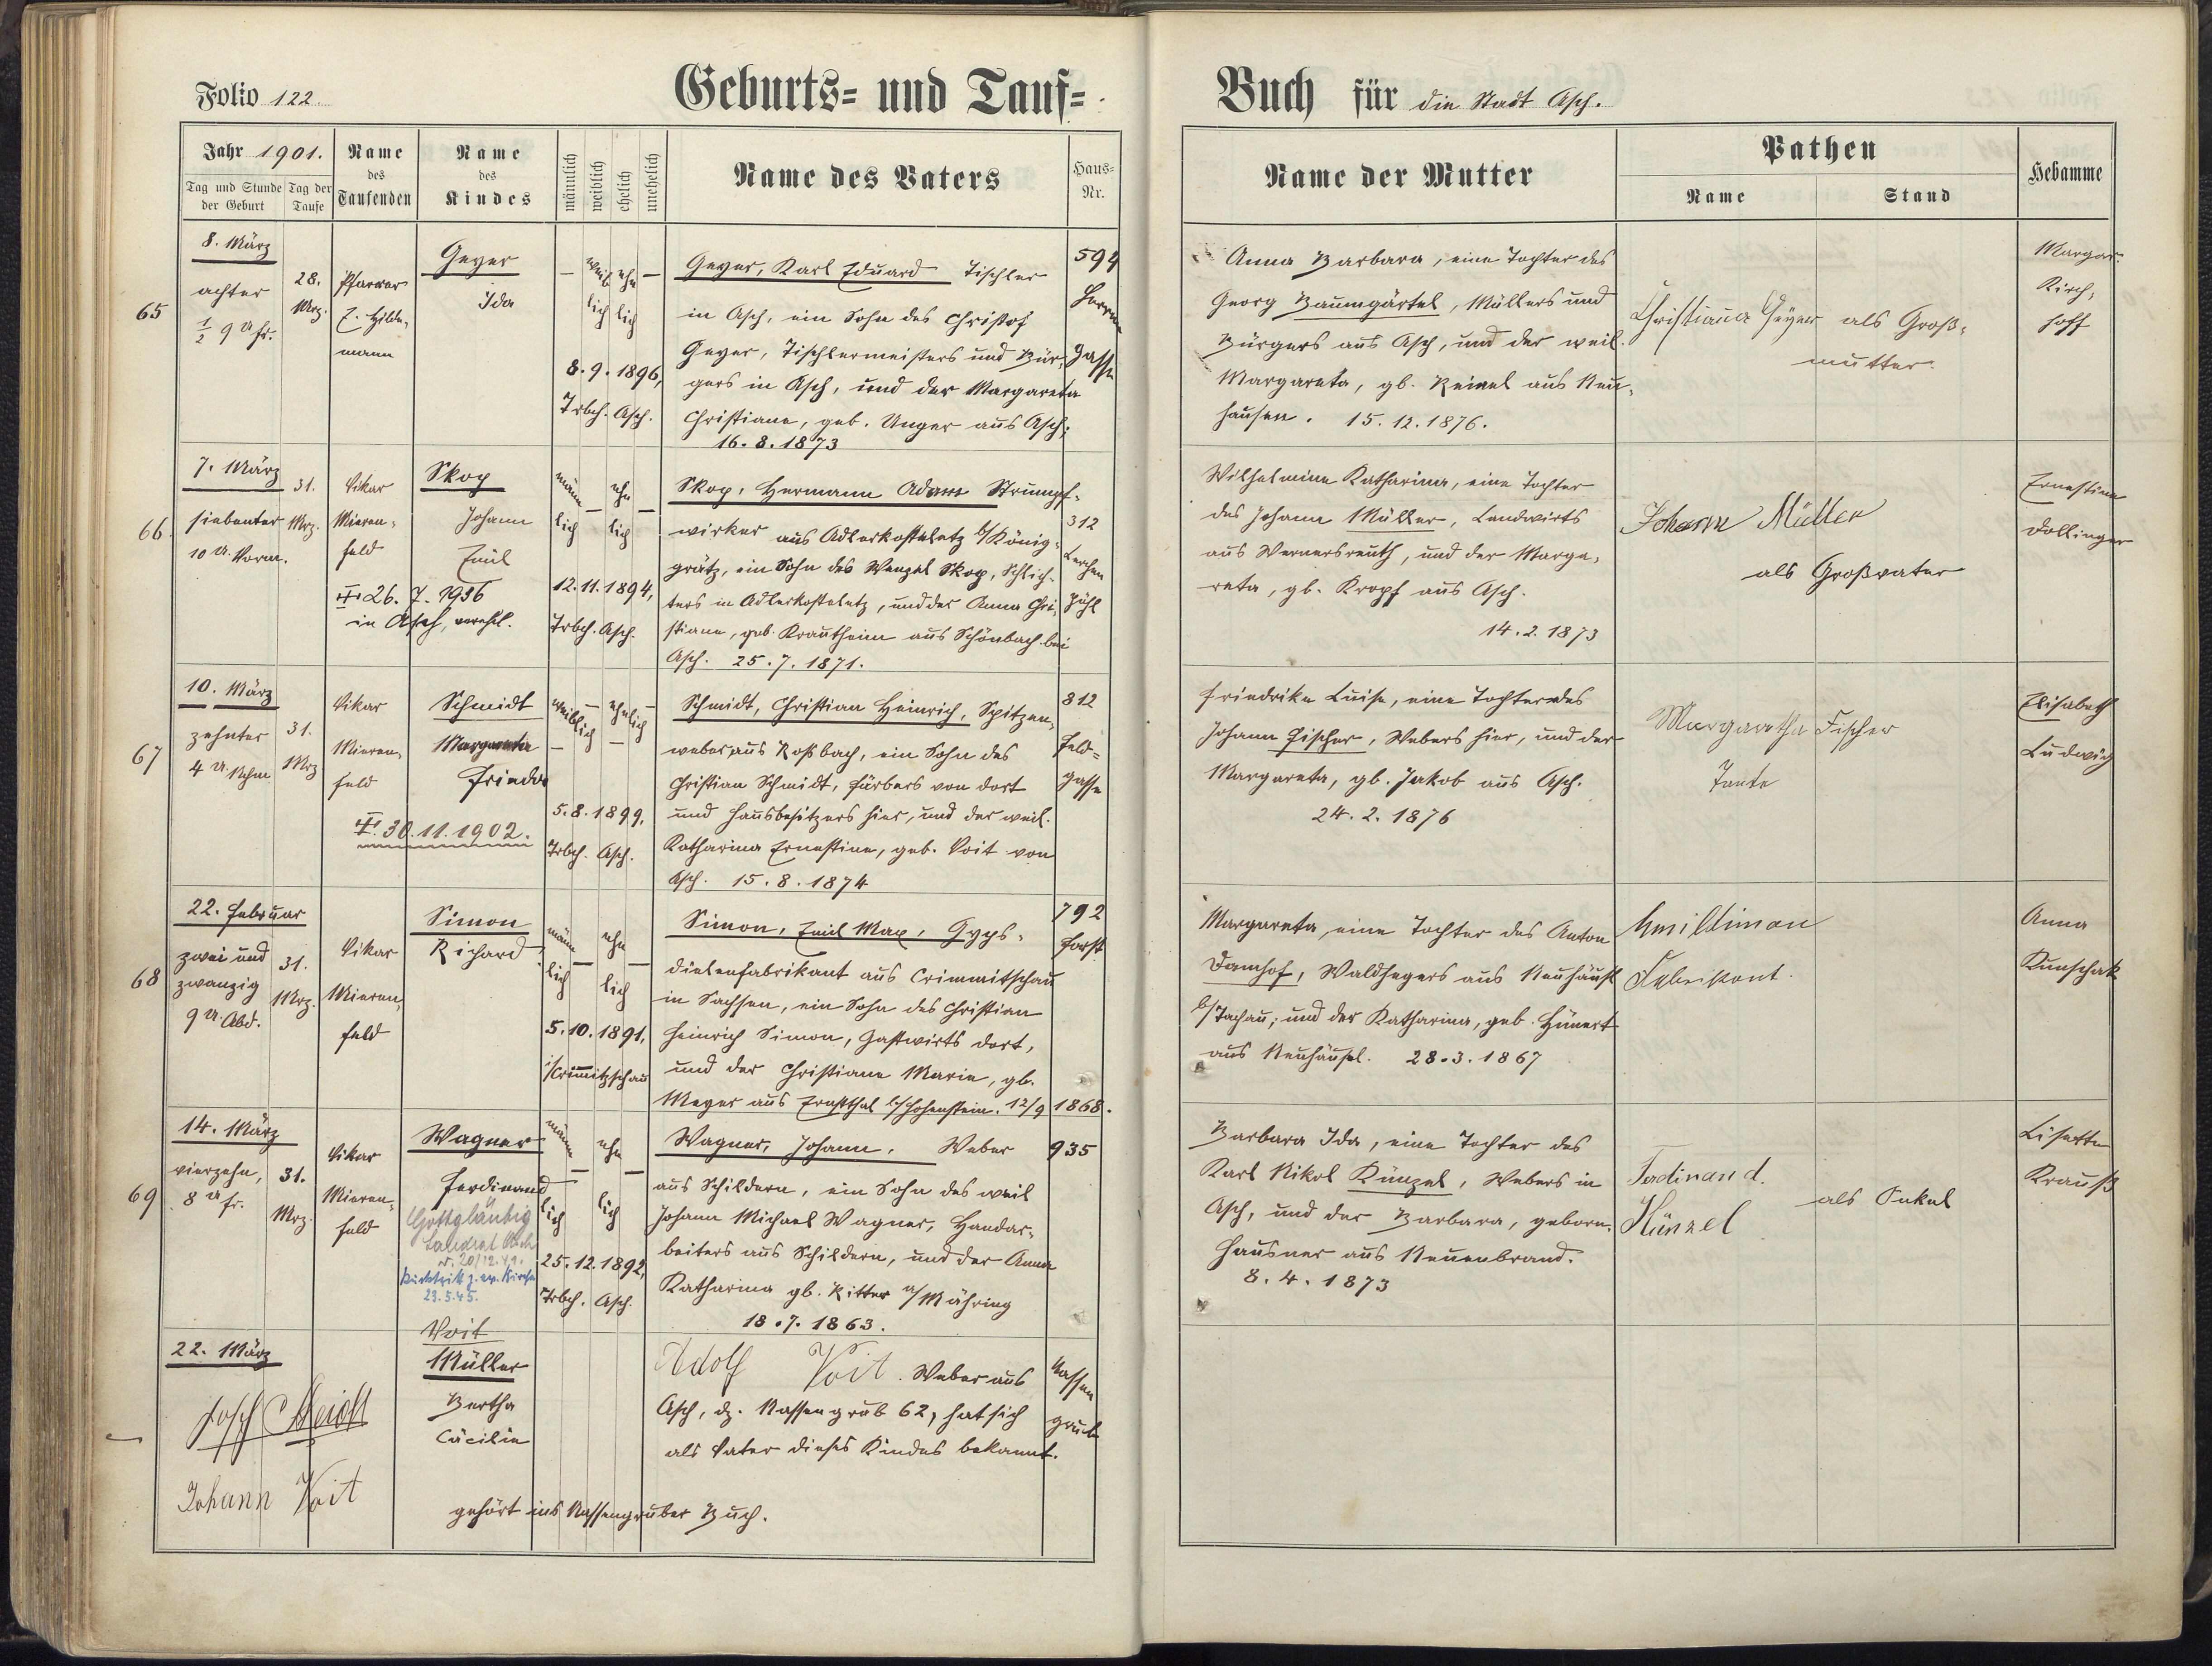 Folio 122.
Geburts- und Tauf-
Buch für die Stadt Asch.
Jahr 1901.
Tag und Stunde der Geburt
Tag der Taufe
Name des Taufenden
Name des Kindes
männlich
weiblich
ehelich
unehelich
Name des Vaters
Haus-Nr.
Name der Mutter
Pathen
Name
Stand
Hebamme
65
8. März
achter
½ 9 U fr.
28.
Mrz.
Pfarrer
E. Hilde-
mann
Geyer
Ida
— weib ehe —
lich lich
8.9.1896,
Trbch. Asch.
Geyer, Karl Eduard Tischler
in Asch, ein Sohn des Christof
Geyer, Tischlermeisters und Bür-
gers in Asch, und der Margareta
Christiane, geb. Unger aus Asch;
16.8.1873
594
Gasse
Anna Barbara, eine Tochter des
Georg Baumgärtel, Müllers und
Bürgers aus Asch, und der weil.
Margareta, gb. Reinel aus Neu-
hausen. 15.12.1876.
Christiana Geyer als Groß-
mutter.
Margar.
Kirch-
hoff
66
7. März
siebenter
10 U. Vorm.
31.
Mrz.
Vikar
Mieren-
feld
26.7.1936
in Asch, verehl.
Skop
Johann
Emil
männ — ehe —
lich lich
12.11.1894,
Trbch. Asch.
Skop, Hermann Adam Strumpf-
wirker aus Adlerkosteletz b/König-
grätz, ein Sohn des Wenzel Skop, Schlich-
ters in Adlerkosteletz, und der Anna Chri-
stiane, geb. Krautheim aus Schönbach bei
Asch. 25.7.1871.
312
Lerchen
Pühl
Wilhelmine Katharina, eine Tochter
des Johann Müller, Landwirts
aus Wernersreuth, und der Marga-
reta, gb. Kropf aus Asch.
14.2.1873
Johann Müller
als Großvater
Ernestine
Dollinger
67
10. März
zehnter
4 U. Nchm
31.
Mrz
Vikar
Mieren-
feld
30.11.1902.
Schmidt
Margareta
Frieda
weiblich — ehelich —
5.8.1899,
Trbch. Asch.
Schmidt, Christian Heinrich, Spitzen-
weber aus Roßbach, ein Sohn des
Christian Schmidt, Färbers von dort
und Hausbesitzers hier, und der weil.
Katharina Ernestine, geb. Voit von
Asch. 15.8.1874
812
Feld-
gasse
Friedrike Luise, eine Tochter des
Johann Fischer, Webers hier, und der
Margareta, gb. Jakob aus Asch.
24.2.1876
Margaretha Fischer
Tante
Elisabeth
Ludwig
68
22. Februar
zwei und
zwanzig
9 U. Abd.
31.
Mrz.
Vikar
Mieren-
feld
Simon
Richard
männ — ehe —
lich lich
5.10.1891,
i/Crimmitzschau
Simon, Emil Max, Gyps-
dielenfabrikant aus Crimmitschau
in Sachsen, ein Sohn des Christian
Heinrich Simon, Gastwirts dort,
und der Christiane Marie, gb.
Meyer aus Ernstthal b/Hohenstein. 12/9 1868.
792
Forst
Margareta, eine Tochter des Anton
Damhof, Waldhegers aus Neuhäusl
b/Tachau; und der Katharina, geb. Hünert
aus Neuhäusel. 28.3.1867
Emil Simon
Fabrikant.
Anna
Kunschak
69
14. März
vierzehn,
8 U fr.
31.
Mrz.
Vikar
Mieren-
feld
Wagner
Ferdinand
Gottgläubig
Landrat Asch
v. 20/12.41.
Rücktritt z. ev. Kirche
23.5.45.
männ — ehe —
lich lich
25.12.1892,
Trbch. Asch.
Wagner, Johann, Weber
aus Schildern, ein Sohn des weil
Johann Michael Wagner, Handar-
beiters aus Schildern, und der Anna
Katharina gb. Ritter a/Mähring
18.7.1863.
935
Barbara Ida, eine Tochter des
Karl Nikol Künzel, Webers in
Asch, und der Barbara, geborn.
Hausner aus Neuenbrand.
8.4.1873
Ferdinand.
Künzel
als Onkel
Lisette
Krauß
22. März
Johann Voit
Voit
Müller
Bertha
Cäcilie
Adolf Voit. Weber aus
Asch, dz. Nassengrub 62, hat sich
als Vater dieses Kindes bekannt.
Nassen
grub
gehört ins Nassengruber Buch.